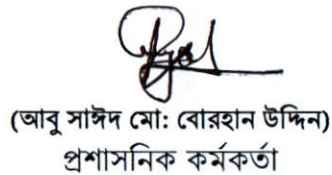 (আবু সাঈদ মো: বোরহান উদ্দিন)
প্রশাসনিক কর্মকর্তা